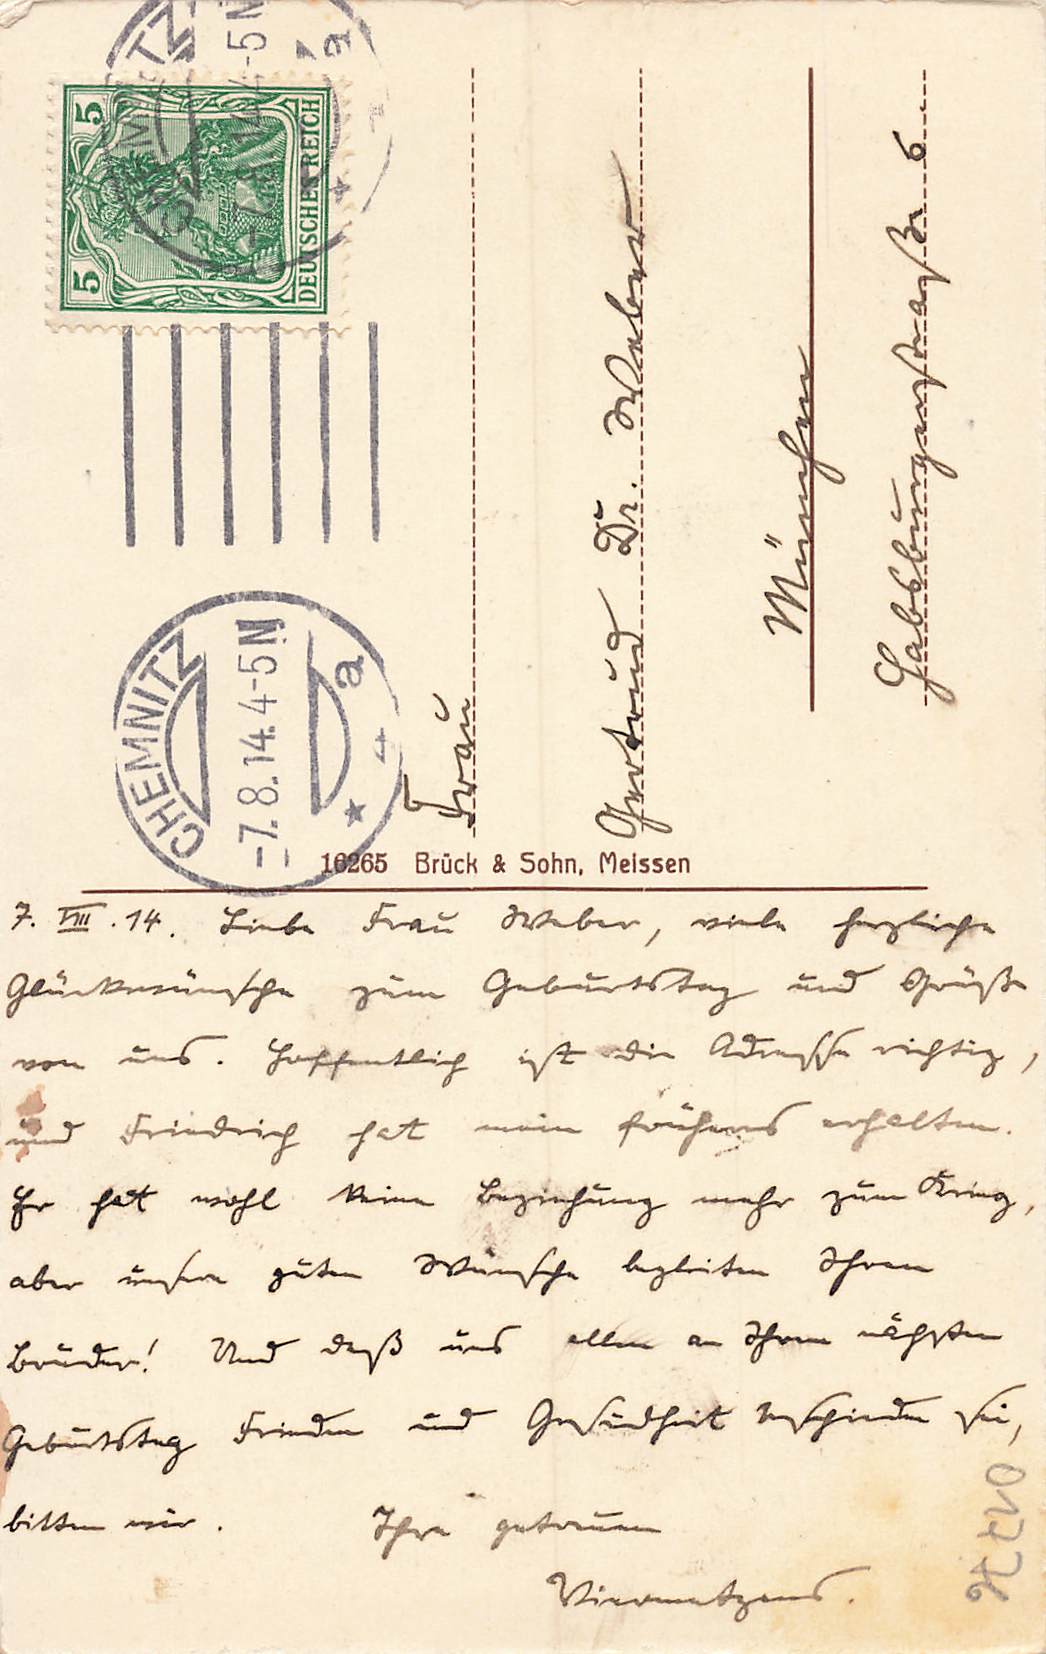 5
5
DEUTSCHES REICH
CHEMNITZ
-7.8.14.4-5N
a
CHEMNITZ
-7.8.14.4-5N
* 4 a
Frau
Gertrud Dr. Weber
München
Habsburgerstraße 6
16265 Brück & Sohn, Meissen
7. VIII. 14. Liebe Frau Weber, viele herzliche
Glückwünsche zum Geburtstag und Grüße
von uns. Hoffentlich ist die Adresse richtig,
und Friedrich hat mein früheres erhalten.
Er hat wohl keine Beziehung mehr zum Krieg,
aber unsere guten Wünsche begleiten Ihren
Bruder! Und daß uns allen an Ihrem nächsten
Geburtstag Frieden und Gesundheit beschieden sei,
bitten wir. Ihre getreuen